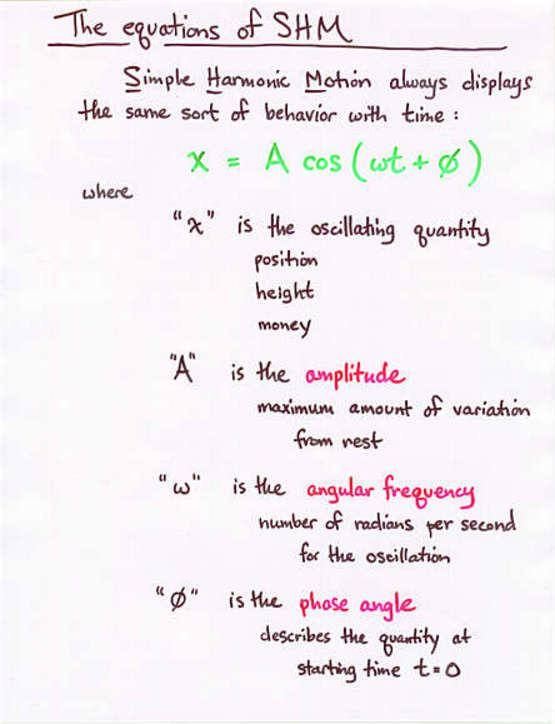 The equations of SHM
Simple Harmonic Motion always displays
the same sort of behavior with time :
x = A cos (ωt + φ)
where
"x" is the oscillating quantity
position
height
money
"A" is the amplitude
maximum amount of variation
from rest
"ω" is the angular frequency
number of radians per second
for the oscillation
"φ" is the phase angle
describes the quantity at
starting time t=0